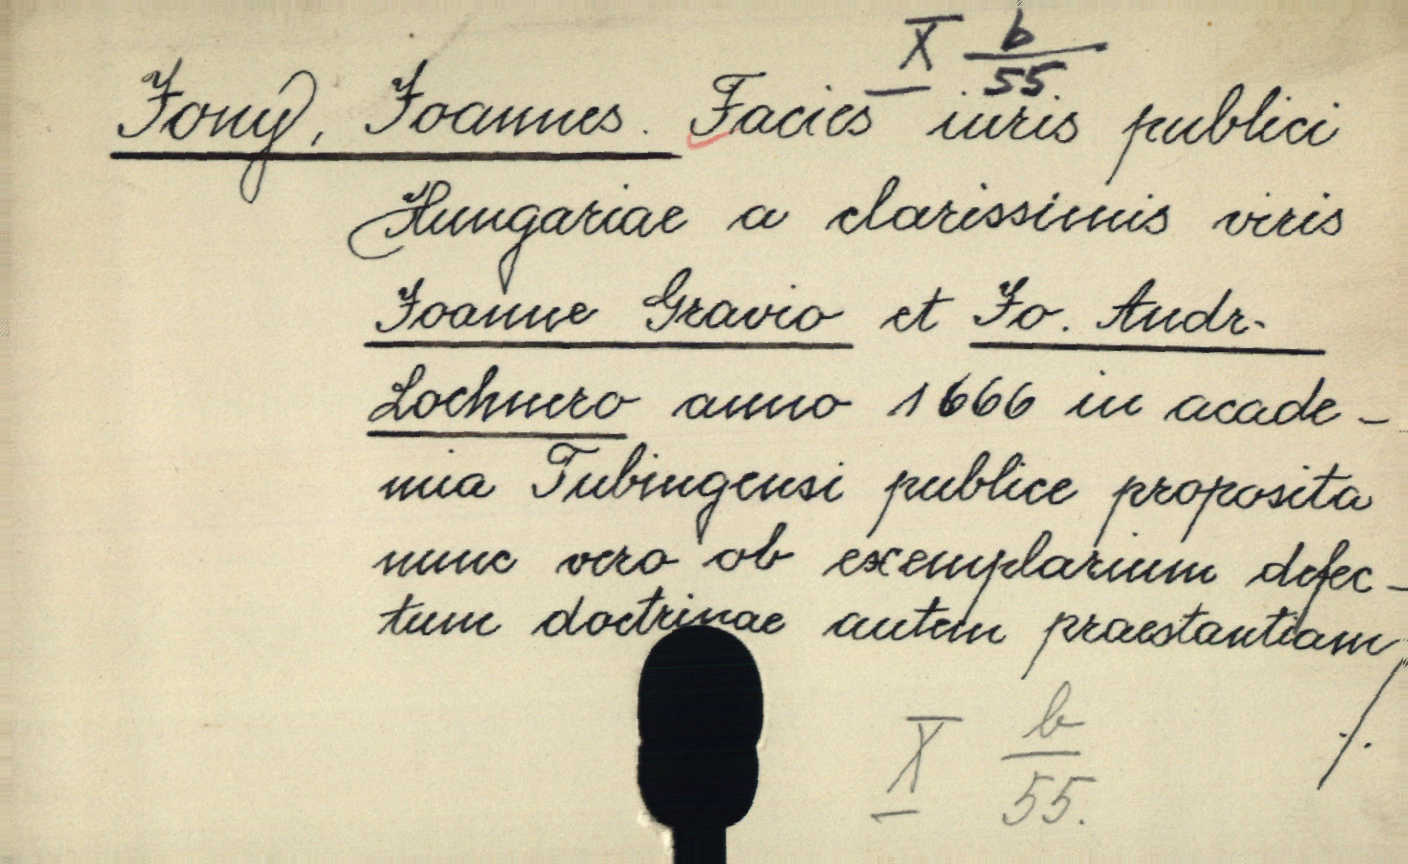 X b/55
Jony, Joannes. Facies iuris publici
Hungariae a clarissimis viris
Joanne Gravio et Jo. Andr.
Lochnero anno 1666 in acade-
mia Tubingensi publice proposita
nunc vero ob exemplarium defec-
tum doctrinae autem praestantiam
./.
X b/55.